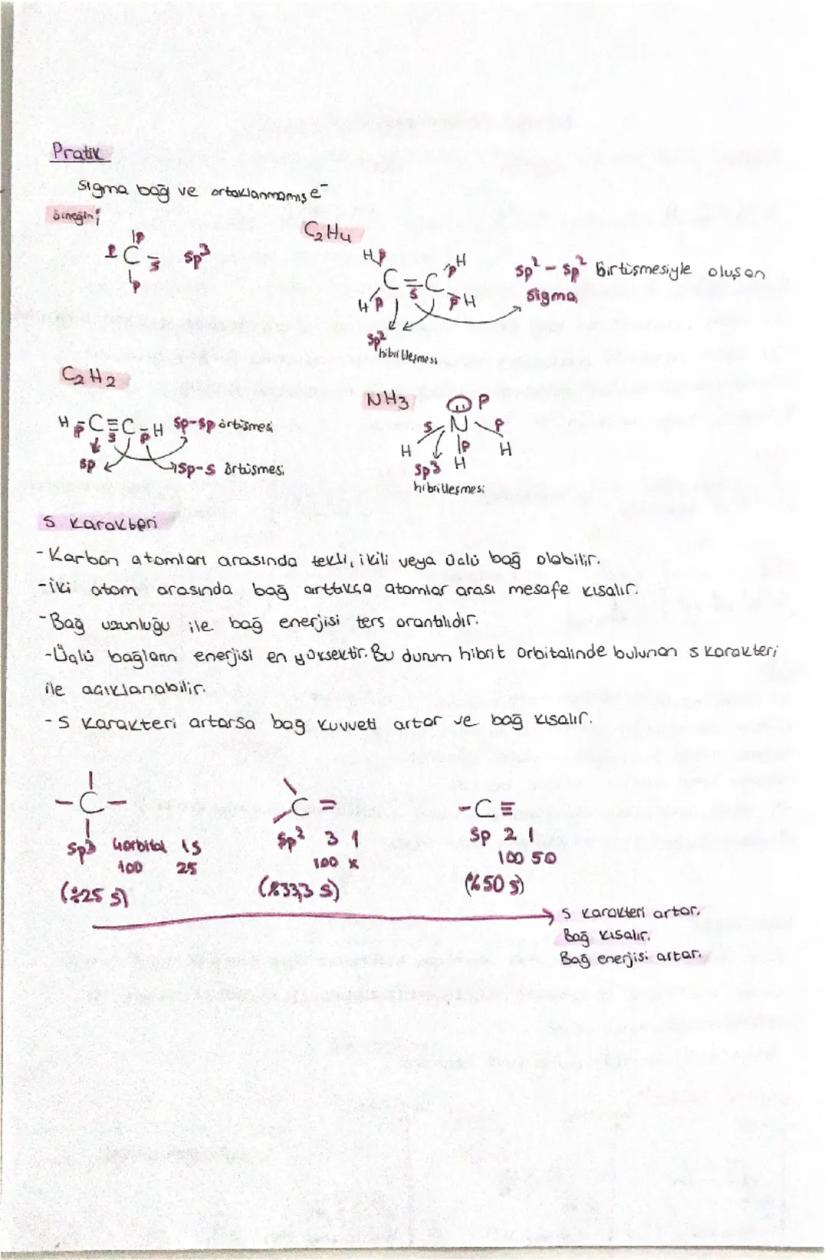 Pratik
Sigma bağ ve ortaklanmamış e⁻
örneğin;
p
C s sp³
p
C₂H₄
H p p H
C = C
s
H p p H
sp² - sp² örtüşmesiyle oluşan
sigma
sp²
hibritleşmesi
C₂H₂
H p C ≡ C p H sp-sp örtüşmesi
s
sp sp-s örtüşmesi
NH₃
p
s N p
H p H
sp³ H
hibritleşmesi
S Karakteri
- Karbon atomları arasında tekli, ikili veya üçlü bağ olabilir.
- İki atom arasında bağ arttıkça atomlar arası mesafe kısalır.
- Bağ uzunluğu ile bağ enerjisi ters orantılıdır.
- Üçlü bağların enerjisi en yüksektir. Bu durum hibrit orbitalinde bulunan s karakteri
ile açıklanabilir.
- S karakteri artarsa bağ kuvveti artar ve bağ kısalır.
- C - C = - C ≡
sp³ 4 orbital 1s sp² 3 1 sp 2 1
100 25 100 x 100 50
(%25 s) (%33,3 s) (%50 s)
S karakteri artar.
Bağ kısalır.
Bağ enerjisi artar.